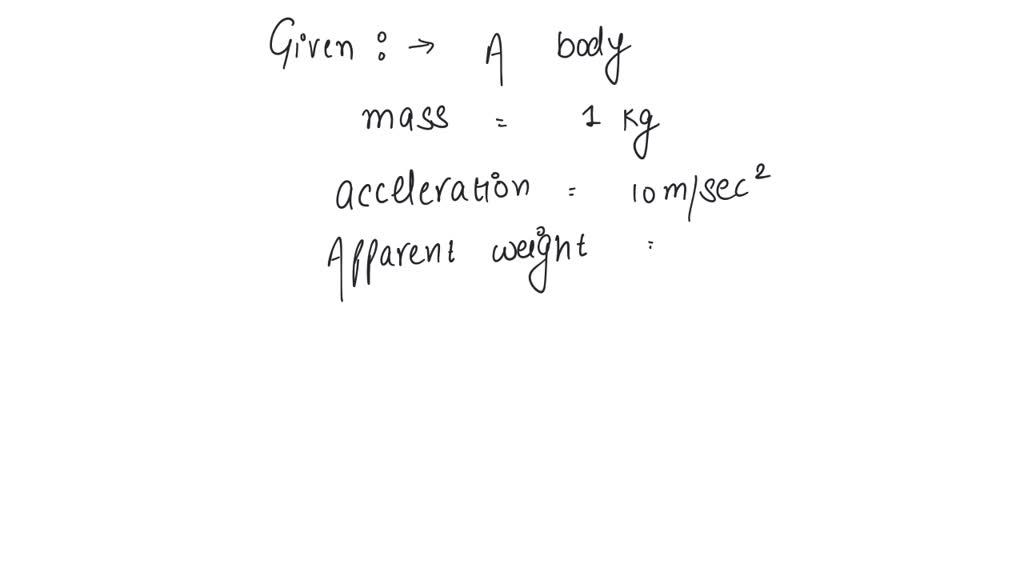 Given : → A body
mass = 1 kg
acceleration = 10 m/sec²
Apparent weight =